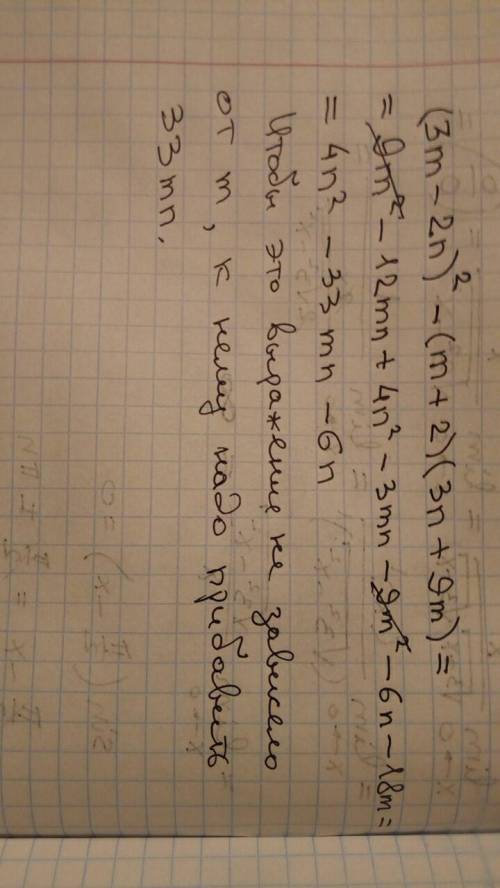 (3m - 2n)² - (m + 2)(3n + 9m) =
= 9m² - 12mn + 4n² - 3mn - 9m² - 6n - 18m =
= 4n² - 33mn - 6n
Чтобы это выражение не зависело
от m, к нему надо прибавить
33mn.